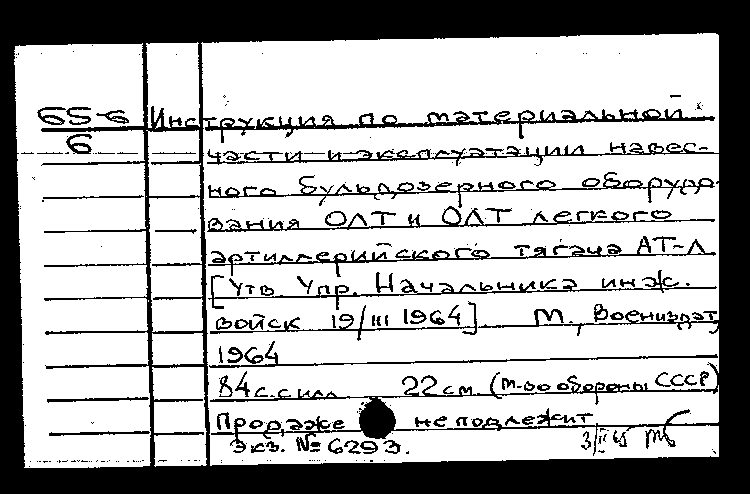 65-6 Инструкция по материальной
6 части и эксплуатации навес-
ного бульдозерного оборудо-
вания ОЛТ и ОЛТ легкого
артиллерийского тягача АТ-Л
[Утв. Упр. Начальника инж.
войск 19/III 1964]. М., Воениздат,
1964
84 с. с илл. 22 см. (М-во обороны СССР)
Продаже не подлежит
Экз. № 6293.